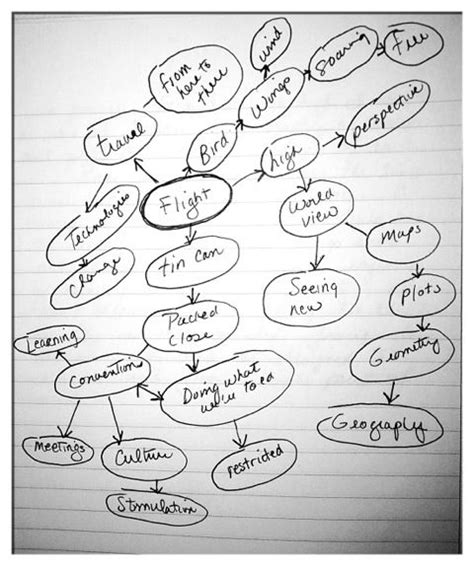 wind
soaring
Free
from
here to
there
wings
travel
Bird
high
perspective
Flight
Technologies
world
view
Maps
change
tin can
Seeing
new
plots
Packed
close
Learning
Convention
Geometry
Doing what
we're told
Geography
Meetings
Culture
restricted
Stimulation